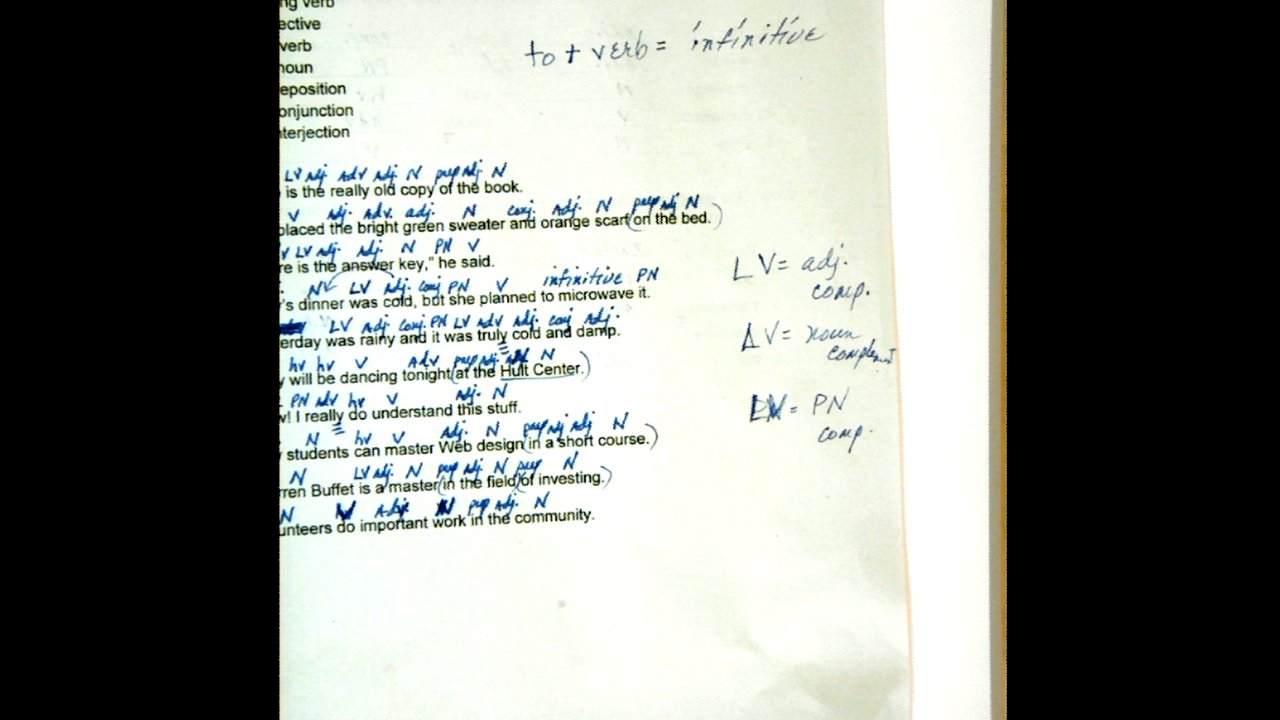 ng verb
ective
verb
noun
eposition
onjunction
nterjection
to + verb = infinitive
LV adj. adv adj. N prep adj. N
is the really old copy of the book.
V adj. adv. adj. N conj. adj. N prep adj N
placed the bright green sweater and orange scarf (on the bed.)
V LV adj. adj. N PN V
re is the answer key," he said.
LV = adj.
comp.
N LV adj. conj PN V infinitive PN
's dinner was cold, but she planned to microwave it.
LV adj conj. PN LV adv adj. conj adj.
erday was rainy and it was truly cold and damp.
LV = noun
complement
hv hv V adv prep adj. N
will be dancing tonight (at the Hult Center.)
PN adv hv V adj. N
w! I really do understand this stuff.
LV = PN
comp.
N hv V adj. N prep adj adj N
students can master Web design (in a short course.)
N LV adj. N prep adj. N prep N
rren Buffet is a master (in the field) (of investing.)
N V adj. N prep adj. N
unteers do important work in the community.